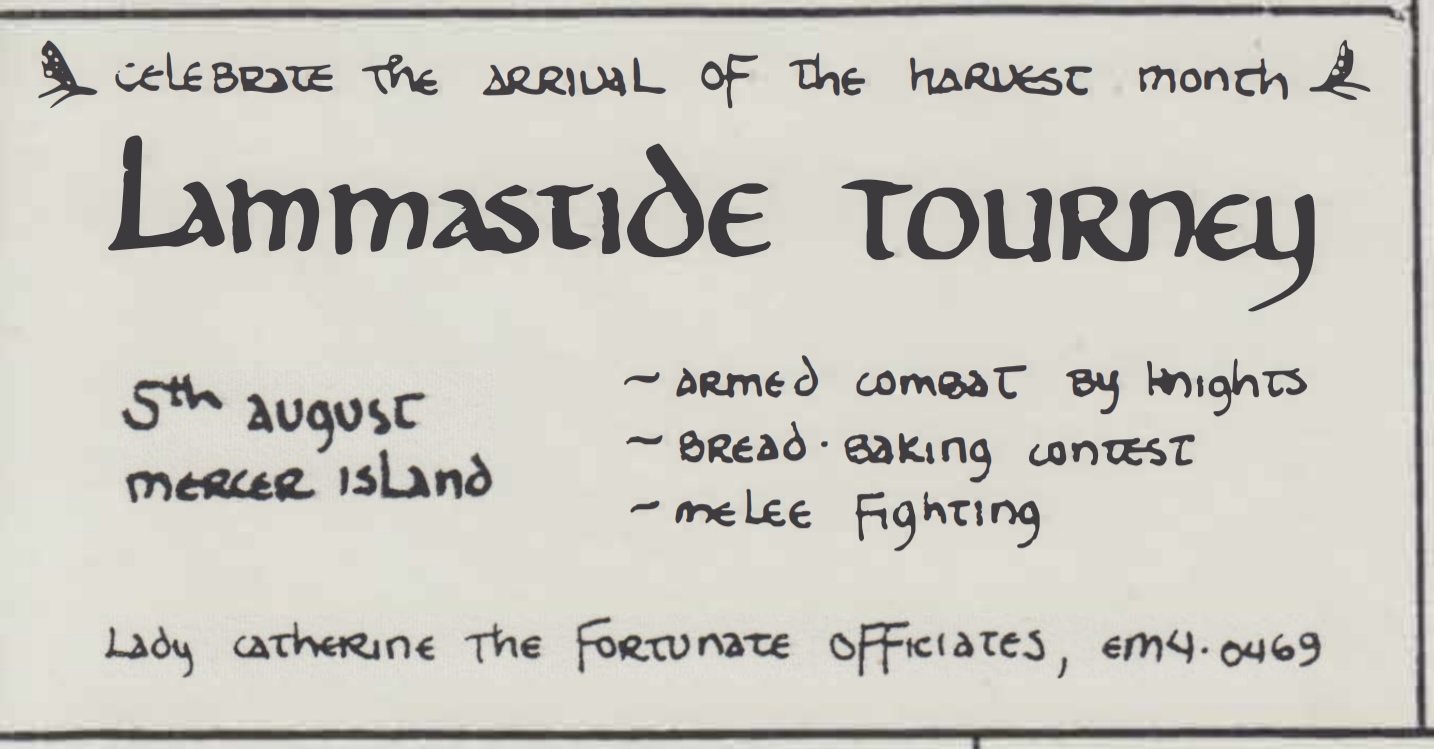 CELEBRATE The ARRIVAL OF The hARVEST month
Lammastide TOURNEY
5th august
mercer island
~ armed combat by knights
~ Bread·Baking contest
~ melee Fighting
Lady catherine The Fortunate officiates, em4·0469